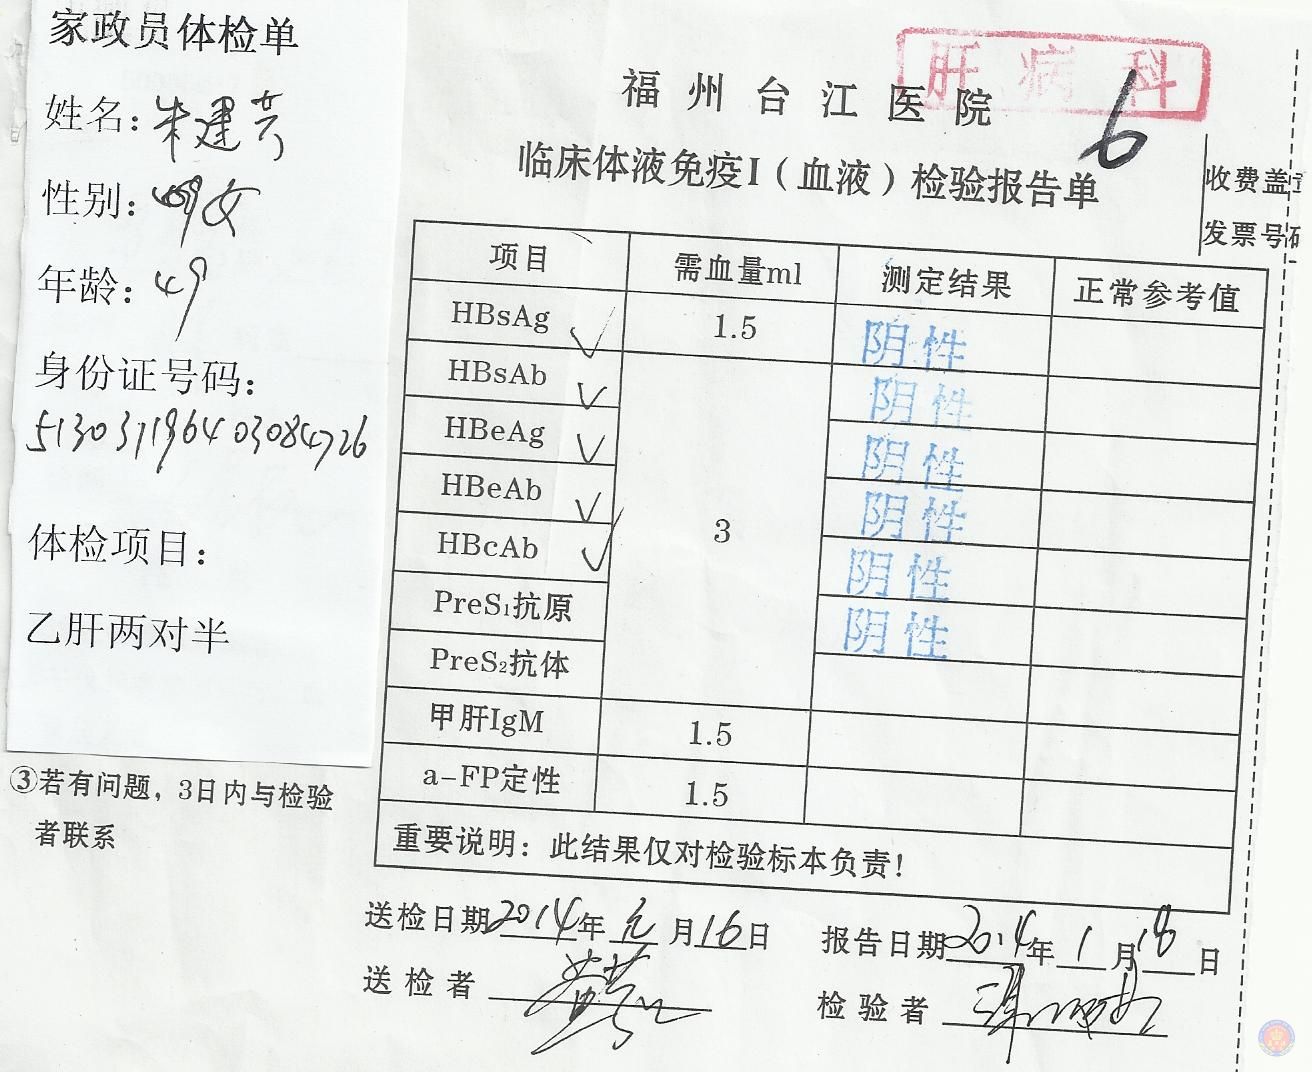 家政员体检单
姓名：朱建芳
性别：女
年龄：49
身份证号码：
513031196403084726
体检项目：
乙肝两对半
③若有问题，3日内与检验
者联系
肝病科
福州台江医院
6
临床体液免疫I（血液）检验报告单
收费盖
发票号码
项目 需血量ml 测定结果 正常参考值
HBsAg ✓ 1.5 阴性
HBsAb ✓ 阴性
HBeAg ✓ 阴性
HBeAb ✓ 3 阴性
HBcAb ✓ 阴性
PreS₁抗原 阴性
PreS₂抗体
甲肝IgM 1.5
a-FP定性 1.5
重要说明：此结果仅对检验标本负责！
送检日期2014年元月16日 报告日期2014年1月18日
送检者
检验者